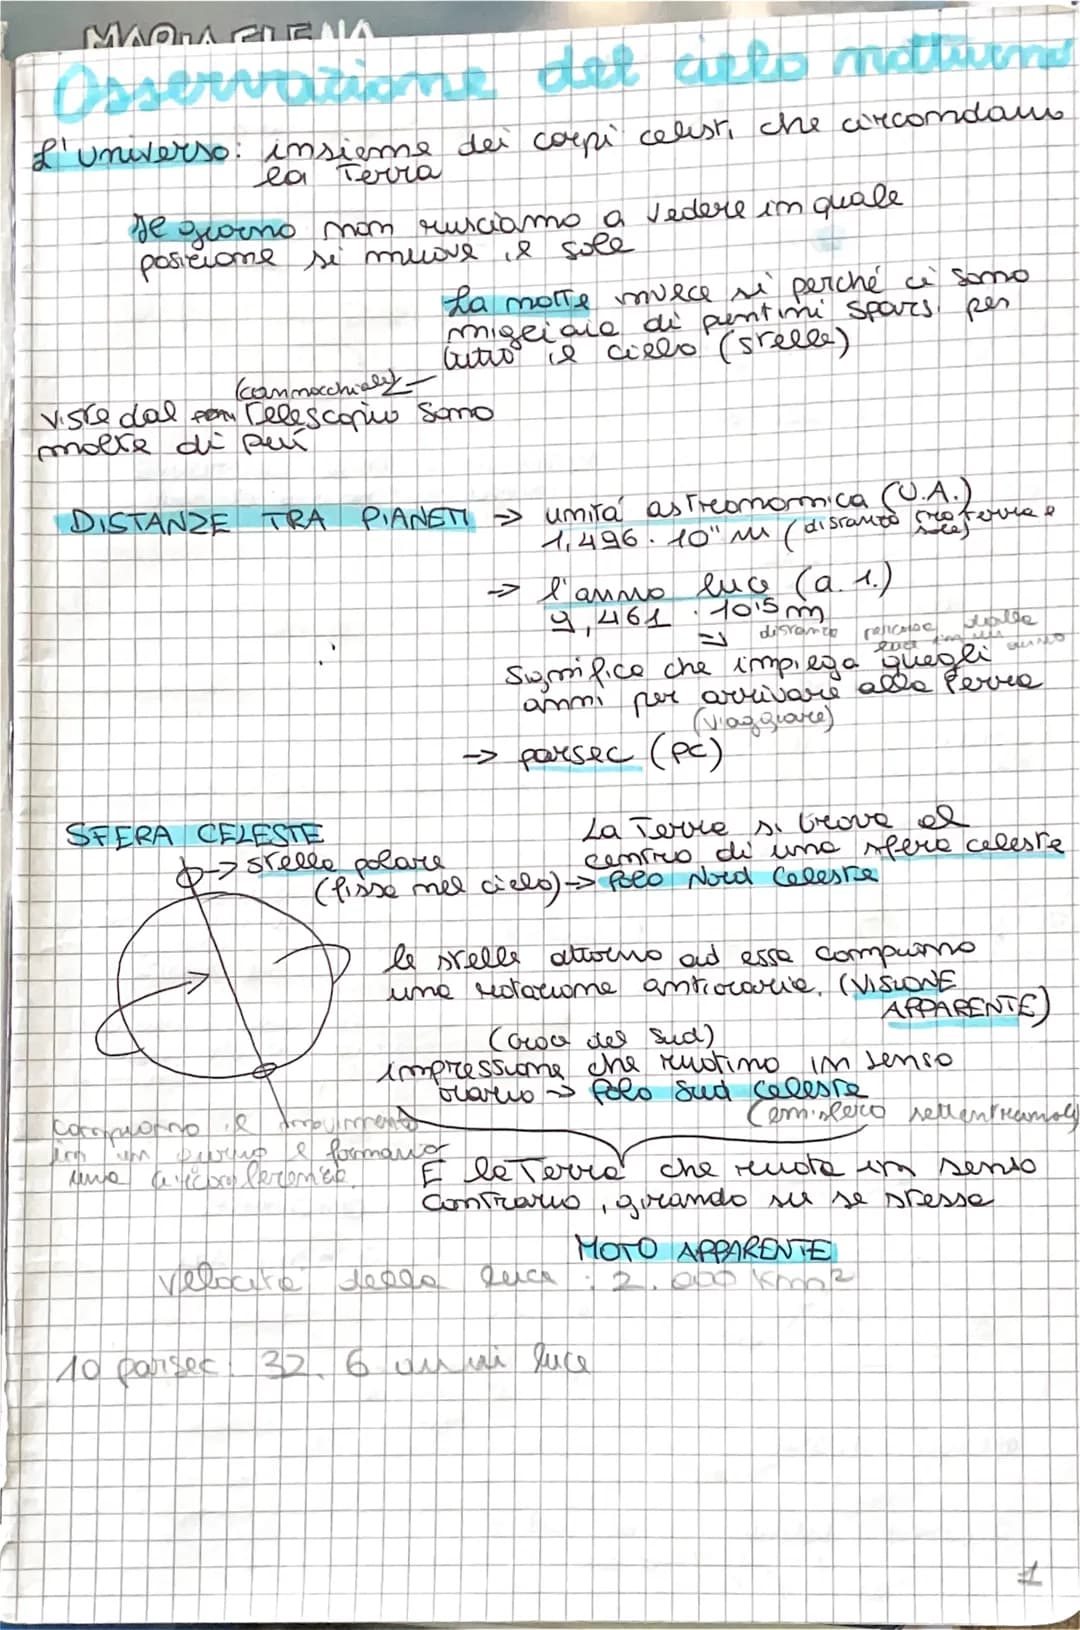 MARIA ELENA
Osservazione del cielo notturno
L'universo: insieme dei corpi celesti che circondano
la Terra
Il giorno non riusciamo a vedere in quale
posizione si muove il sole
La notte invece sì perché ci sono
migliaia di puntini sparsi per
tutto il cielo (stelle)
(cannocchiale)
viste dal Telescopio sono
molte di più
DISTANZE TRA PIANETI → unità astronomica (U.A.)
1,496 · 10¹¹ m (distanza tra terra e
sole)
→ l'anno luce (a.l.)
9,461 · 10¹⁵ m
⇒ distanza percorsa dalla
luce in un anno
Significa che impiega quegli
anni per arrivare alla Terra
(viaggiare)
→ parsec (pc)
SFERA CELESTE
La Terra si trova al
centro di una sfera celeste
→ stella polare
(fissa nel cielo) → Polo Nord Celeste
le stelle attorno ad essa compiono
una rotazione antioraria. (VISIONE
APPARENTE)
(croce del Sud)
impressione che ruotino in senso
orario → Polo Sud Celeste
(emisfero settentrionale)
compiono il movimento
in un giorno e formano
una circonferenza.
È la Terra che ruota in senso
contrario, girando su se stessa
MOTO APPARENTE
Velocità della luce : 2. 000 km²
10 parsec: 32. 6 anni luce
1